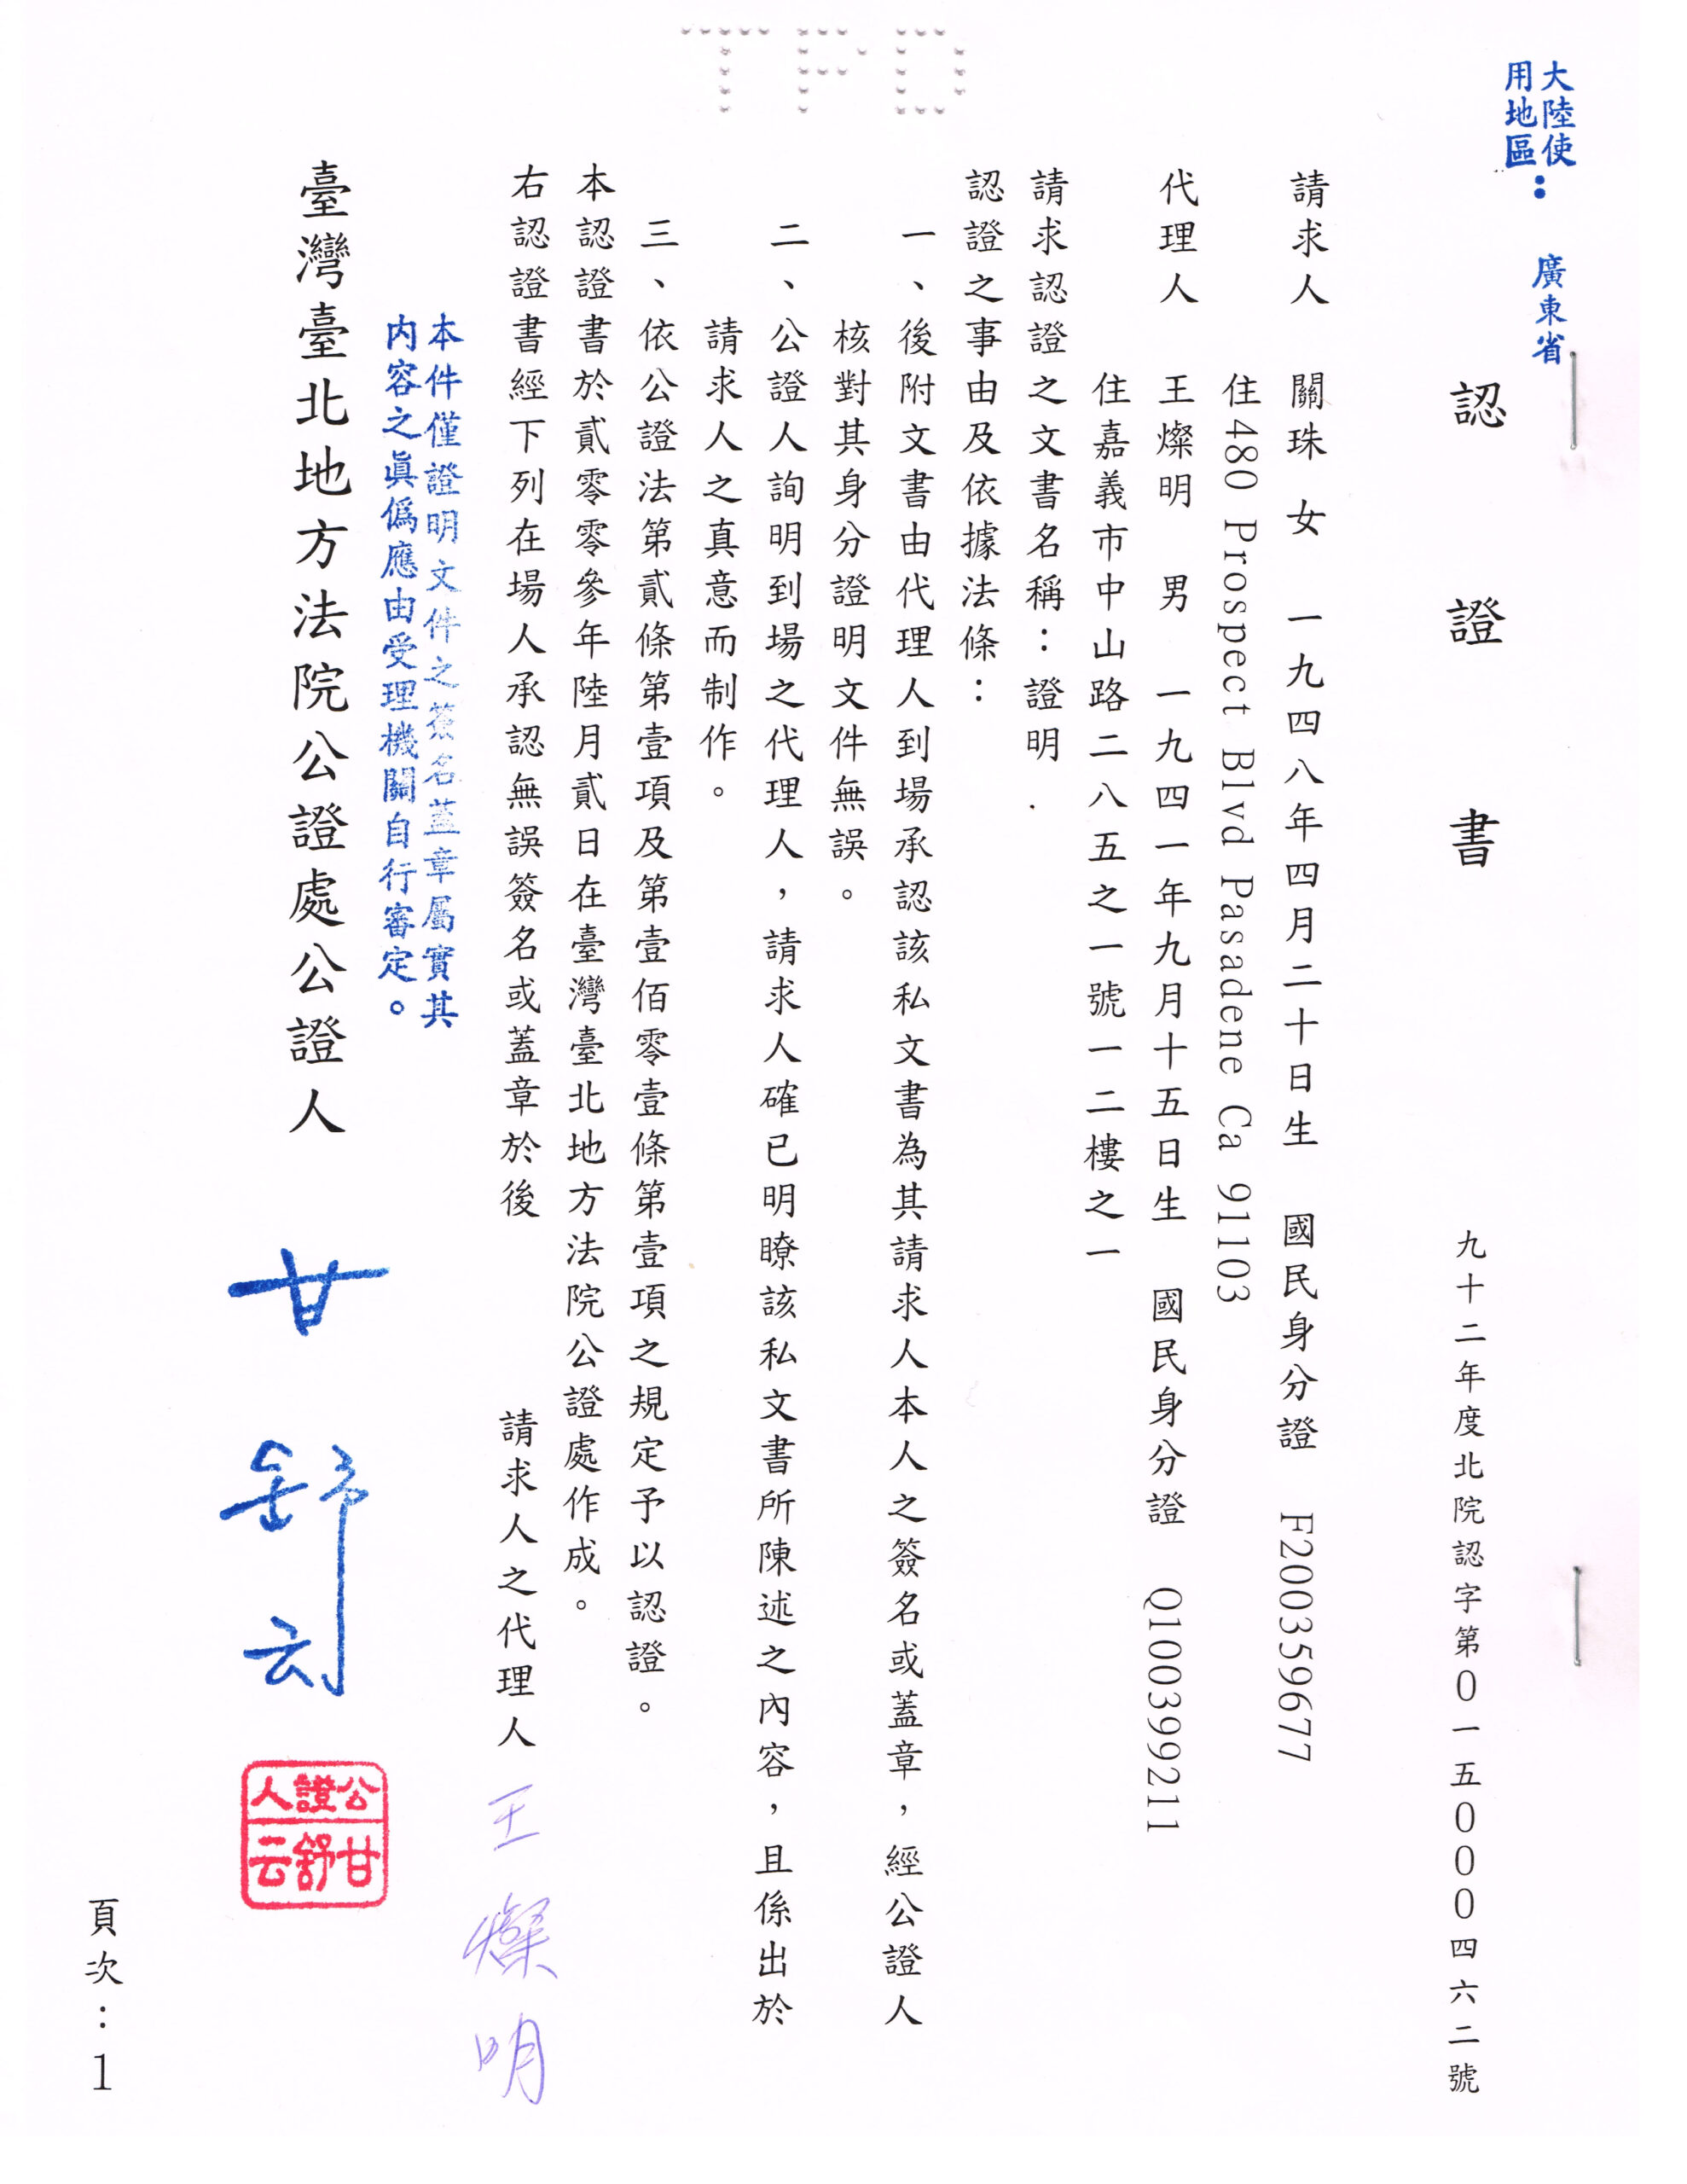 大陸地區使用：廣東省
認證書
九十二年度北院認字第0一五000四六二號
請求人 關珠 女 一九四八年四月二十日生 國民身分證 F200359677
住480 Prospect Blvd Pasadene Ca 91103
代理人 王燦明 男 一九四一年九月十五日生 國民身分證 Q100399211
住嘉義市中山路二八五之一號一二樓之一
請求認證之文書名稱：證明
認證之事由及依據法條：
一、後附文書由代理人到場承認該私文書為其請求人本人之簽名或蓋章，經公證人
核對其身分證明文件無誤。
二、公證人詢明到場之代理人，請求人確已明瞭該私文書所陳述之內容，且係出於
請求人之真意而制作。
三、依公證法第貳條第壹項及第壹佰零壹條第壹項之規定予以認證。
本認證書於貳零零參年陸月貳日在臺灣臺北地方法院公證處作成。
右認證書經下列在場人承認無誤簽名或蓋章於後
請求人之代理人 王燦明
本件僅證明文件之簽名蓋章屬實其
內容之眞僞應由受理機關自行審定。
臺灣臺北地方法院公證處公證人 甘舒云
公證人
甘舒云
頁次：1
TPD